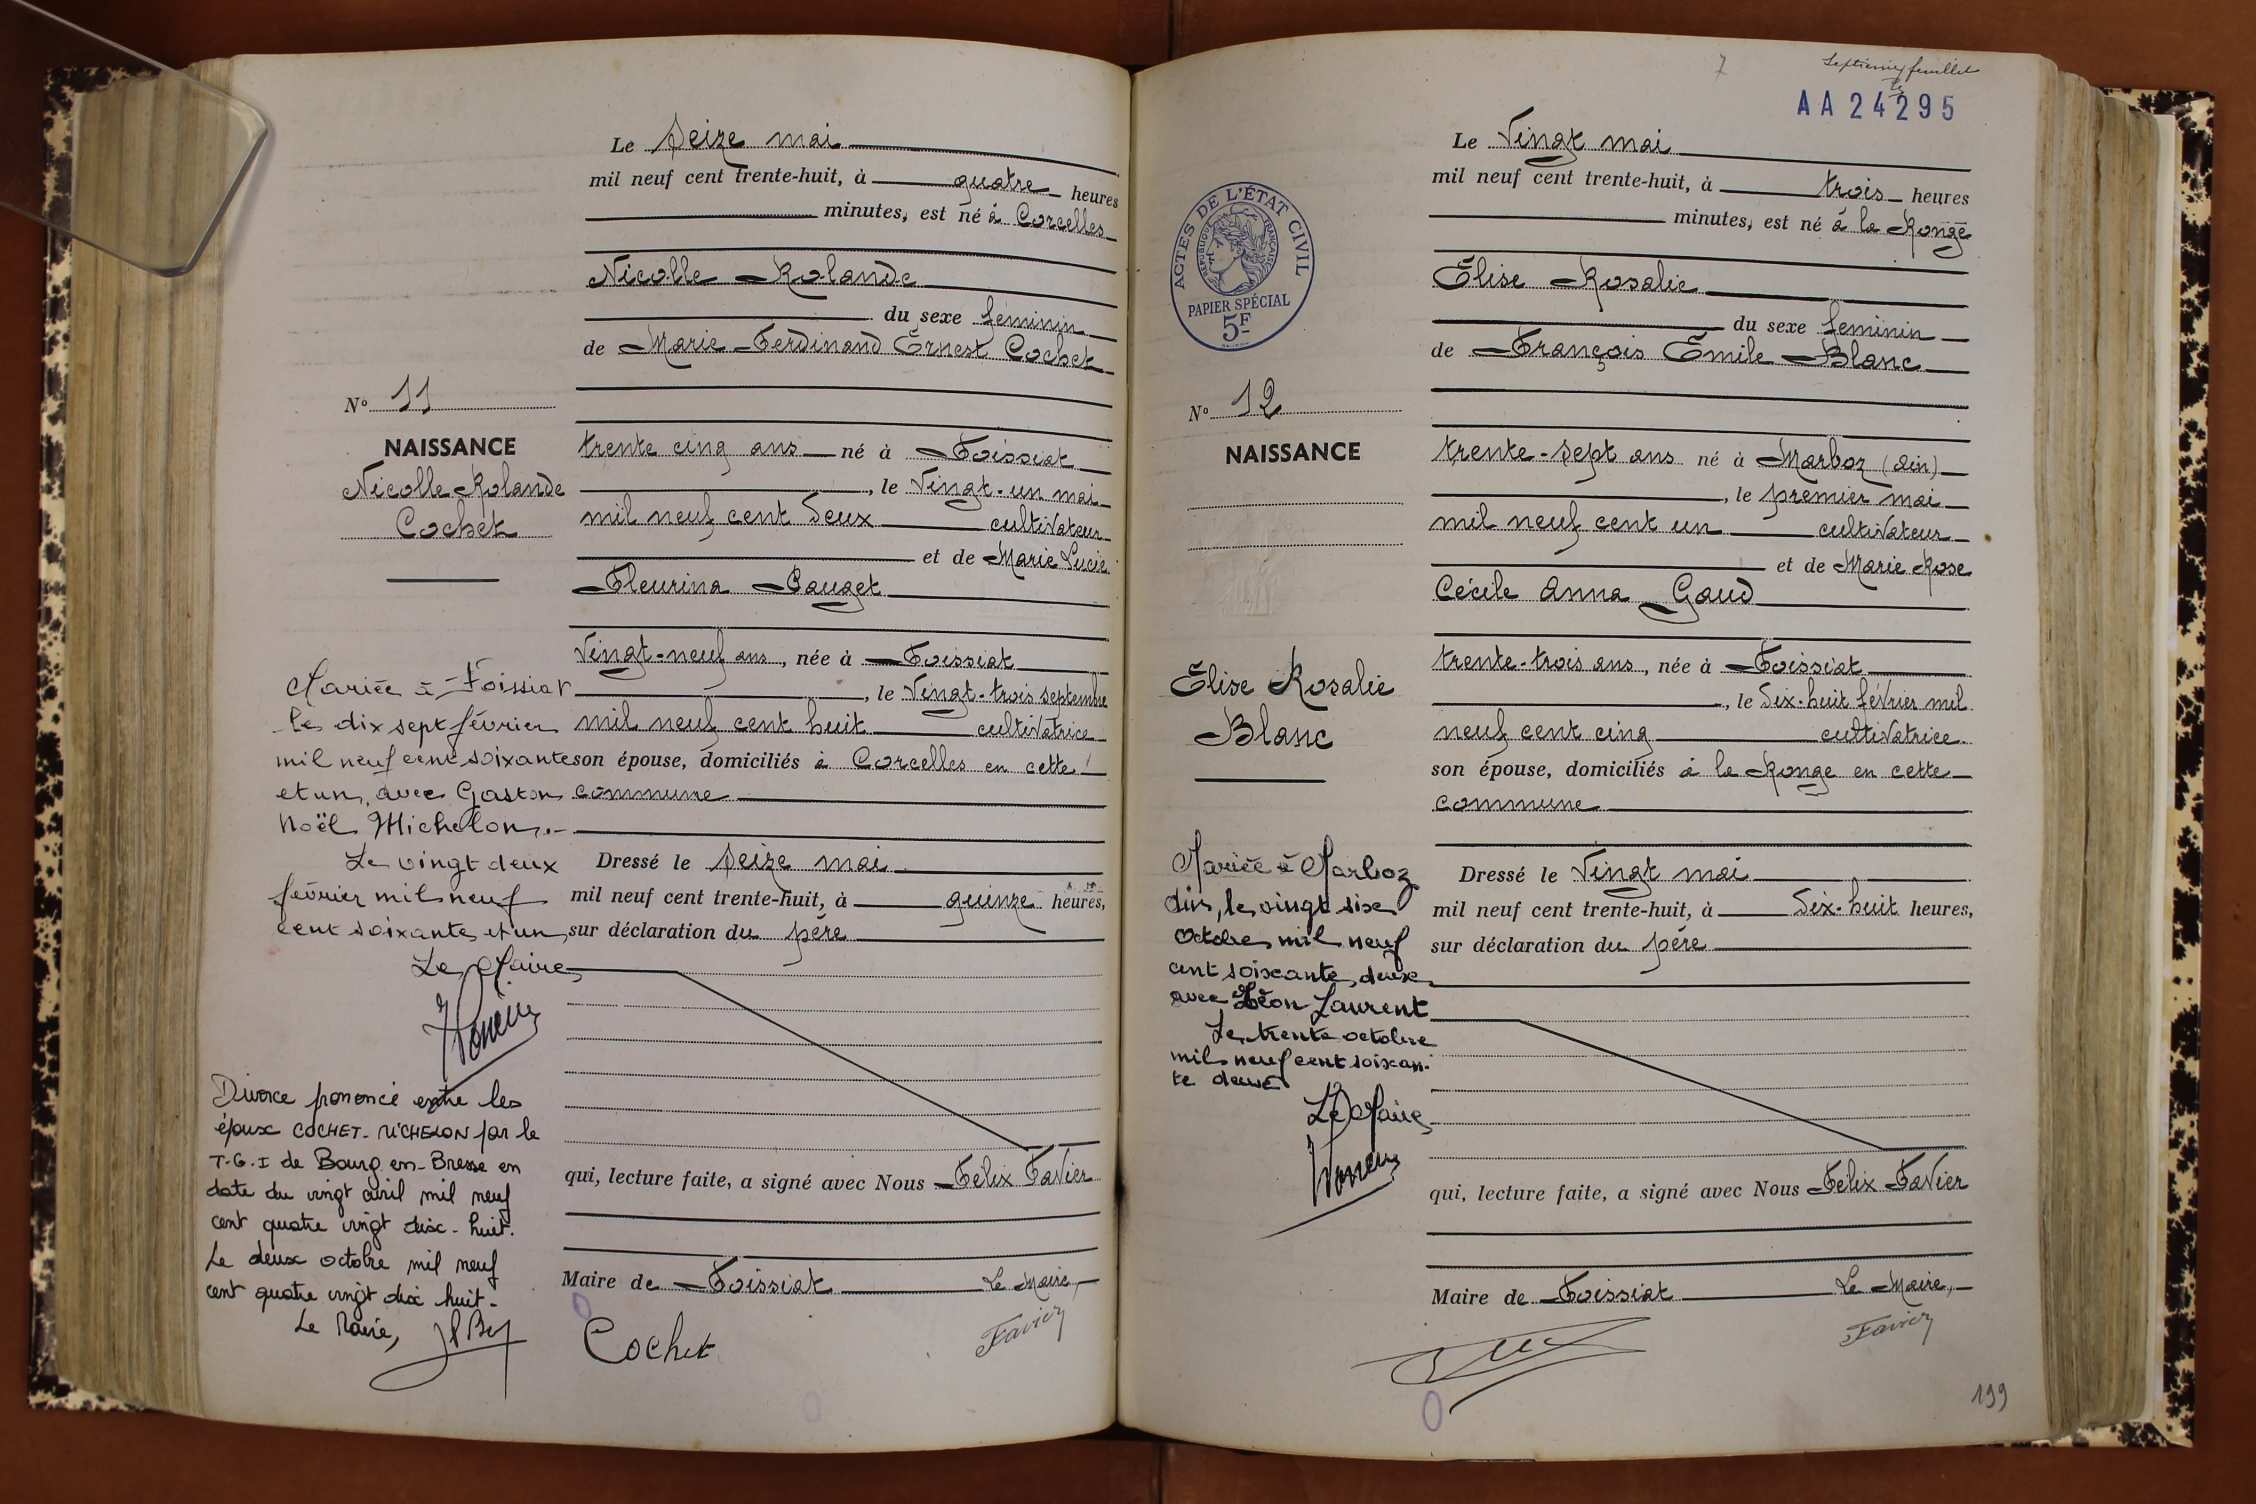 Le Seize mai
mil neuf cent trente-huit, à quatre heures
minutes, est né à Corcelles
Nicolle Rolande
du sexe féminin
de Marie Ferdinand Ernest Cochet
N° 11
NAISSANCE
Nicolle Rolande
Cochet
trente cinq ans né à Foissiat
, le Vingt-un mai
mil neuf cent deux cultivateur
et de Marie Lucie
Fleurina Pauget
Vingt-neuf ans, née à Foissiat
, le Vingt-trois septembre
mil neuf cent huit cultivatrice
son épouse, domiciliés à Corcelles en cette
commune
Dressé le Seize mai
mil neuf cent trente-huit, à quinze heures,
sur déclaration du père
qui, lecture faite, a signé avec Nous Félix Favier
Maire de Foissiat Le Maire,
Cochet Favier
Mariée à Foissiat
le dix sept février
mil neuf cent soixante
et un, avec Gaston
Noël Michelon.
Le vingt deux
février mil neuf
cent soixante et un,
Le Maire,
Divorce prononcé entre les
époux COCHET-MICHELON par le
T.G.I de Bourg en-Bresse en
date du vingt avril mil neuf
cent quatre vingt dix-huit.
Le deux octobre mil neuf
cent quatre vingt dix huit-
Le Maire,
7 Septième feuillet
AA 24295
Le Vingt mai
mil neuf cent trente-huit, à trois heures
minutes, est né à la Ronge
Elise Rosalie
du sexe feminin
de François Emile Blanc
ACTES DE L'ÉTAT CIVIL
RÉPUBLIQUE FRANÇAISE
PAPIER SPÉCIAL
5F
N° 12
NAISSANCE
trente-sept ans né à Marboz (Ain)
, le premier mai
mil neuf cent un cultivateur
et de Marie Rose
Cécile Anna Gaud
trente-trois ans, née à Foissiat
, le dix-huit février mil
neuf cent cinq cultivatrice
son épouse, domiciliés à la Ronge en cette
commune
Dressé le Vingt mai
mil neuf cent trente-huit, à dix-huit heures,
sur déclaration du père
qui, lecture faite, a signé avec Nous Félix Favier
Maire de Foissiat Le Maire,
Favier
Elise Rosalie
Blanc
Mariée à Marboz
Ain, le vingt six
octobre mil neuf
cent soixante deux
avec Léon Laurent
Le trente octobre
mil neuf cent soixan-
te deux
Le Maire,
199